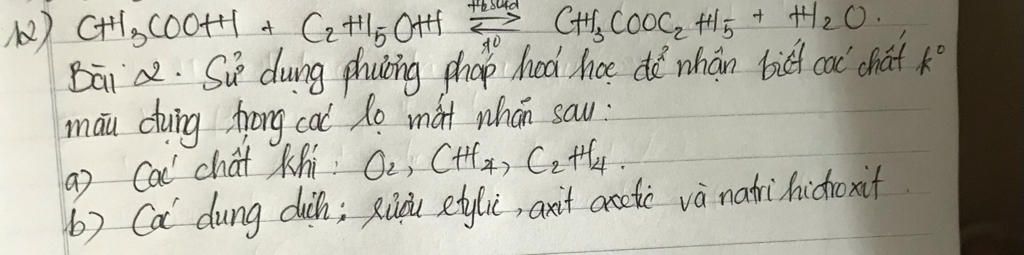 12) CH3COOH + C2H5OH ⇌ CH3COOC2H5 + H2O.
H2SO4đ
t0
Bài 2. Sử dụng phương pháp hoá học để nhận biết các chất k°
màu đựng trong các lọ mất nhãn sau:
a) Các chất khí: O2, CH4, C2H4.
b) Các dung dịch: rượu etylic, axit axetic và natri hidroxit